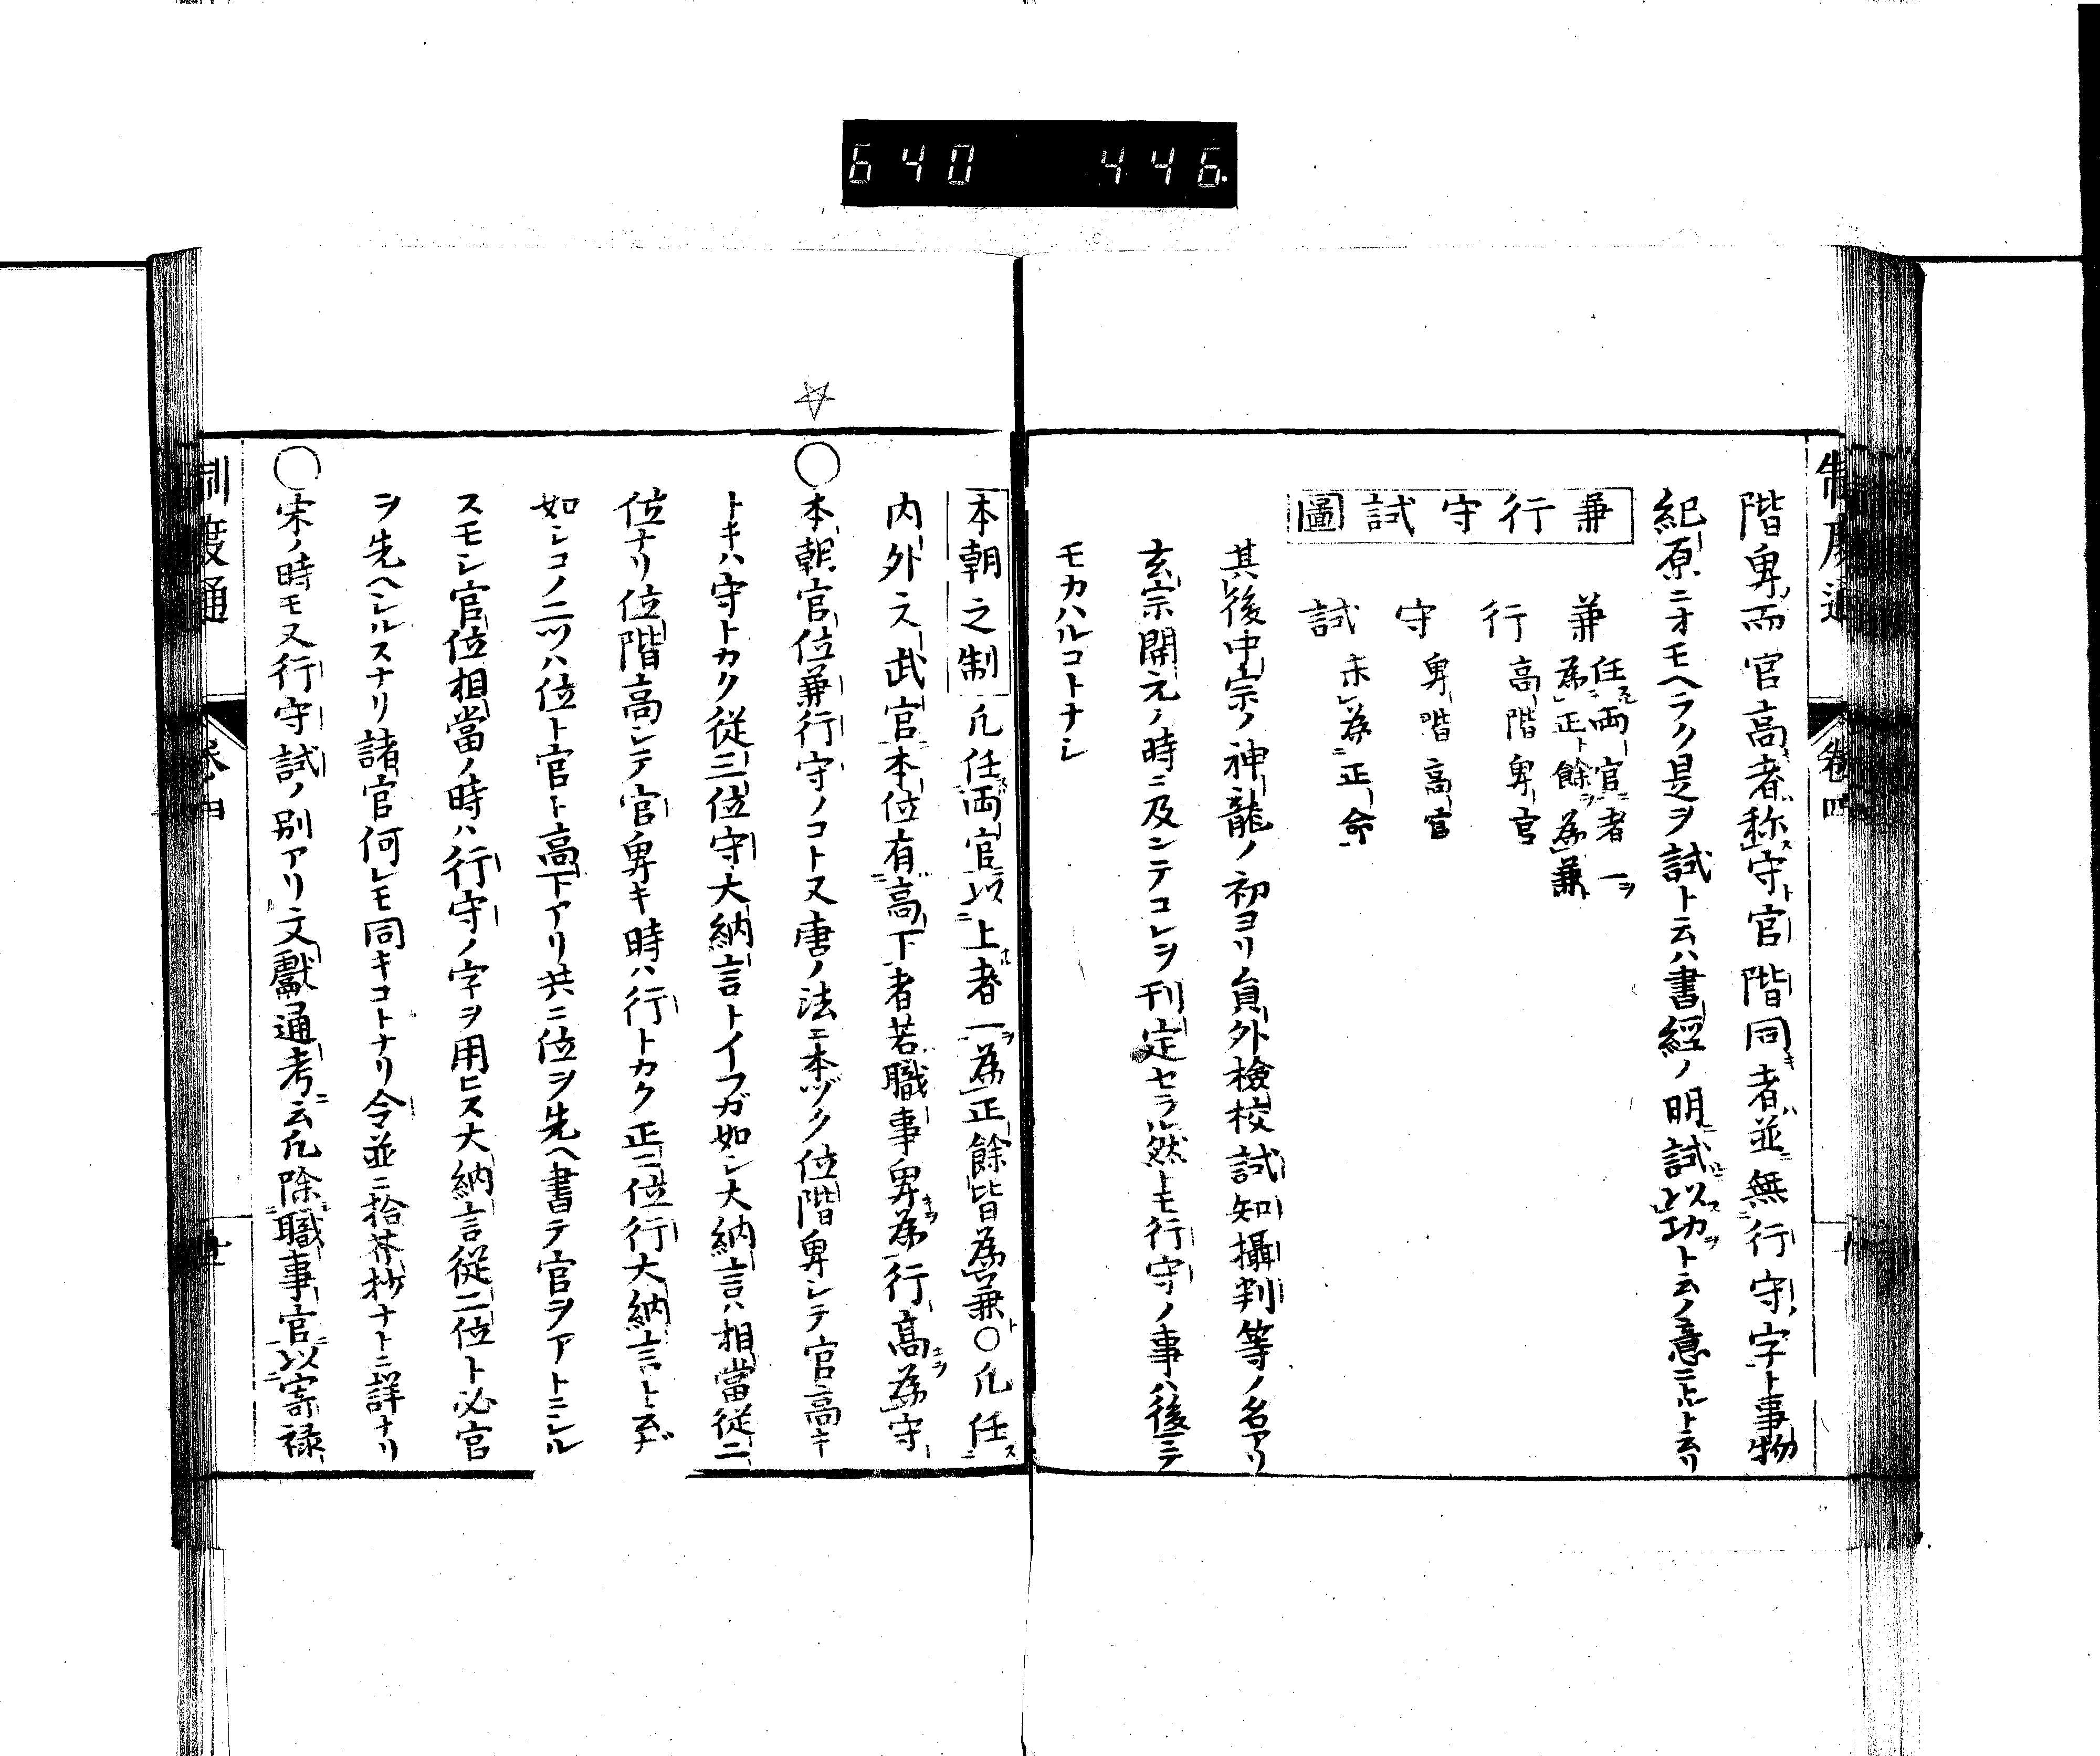 640 446.
制度通 卷四
階卑而官高者称守官階同者並無行守字ト事物
紀原ニオモヘラク是ヲ試ト云ハ書経ノ明試以功ト云ノ意ニトルト云リ
兼行守試圖
兼 任両官者一為正餘為兼
行 高階卑官
守 卑階高官
試 未為正命
其後中宗ノ神龍ノ初ヨリ員外檢校試知攝判等ノ名アリ
玄宗開元ノ時ニ及シテコレヲ刊定セラル然トモ行守ノ事ハ後ニテ
モカハルコトナシ
本朝之制 凡任両官以上者一為正餘皆為兼〇凡任
内外文武官本位有高下者若職事卑為行高為守
〇本朝官位兼行守ノコト又唐ノ法ニ本ヅク位階卑シテ官高キ
トキハ守トカク従三位守大納言トイフガ如シ大納言ハ相當従二
位ナリ位階高シテ官卑キ時ハ行トカク正二位行大納言ト云ガ
如シコノ二ツハ位ト官ト高下アリ共ニ位ヲ先ヘ書テ官ヲアトニシル
スモシ官位相當ノ時ハ行守ノ字ヲ用ヒス大納言従二位ト必官
ヲ先ヘシルスナリ諸官何レモ同キコトナリ令並ニ拾芥抄ナトニ詳ナリ
〇宋ノ時モ又行守試ノ別アリ文獻通考云凡除職事官以寄禄
制度通